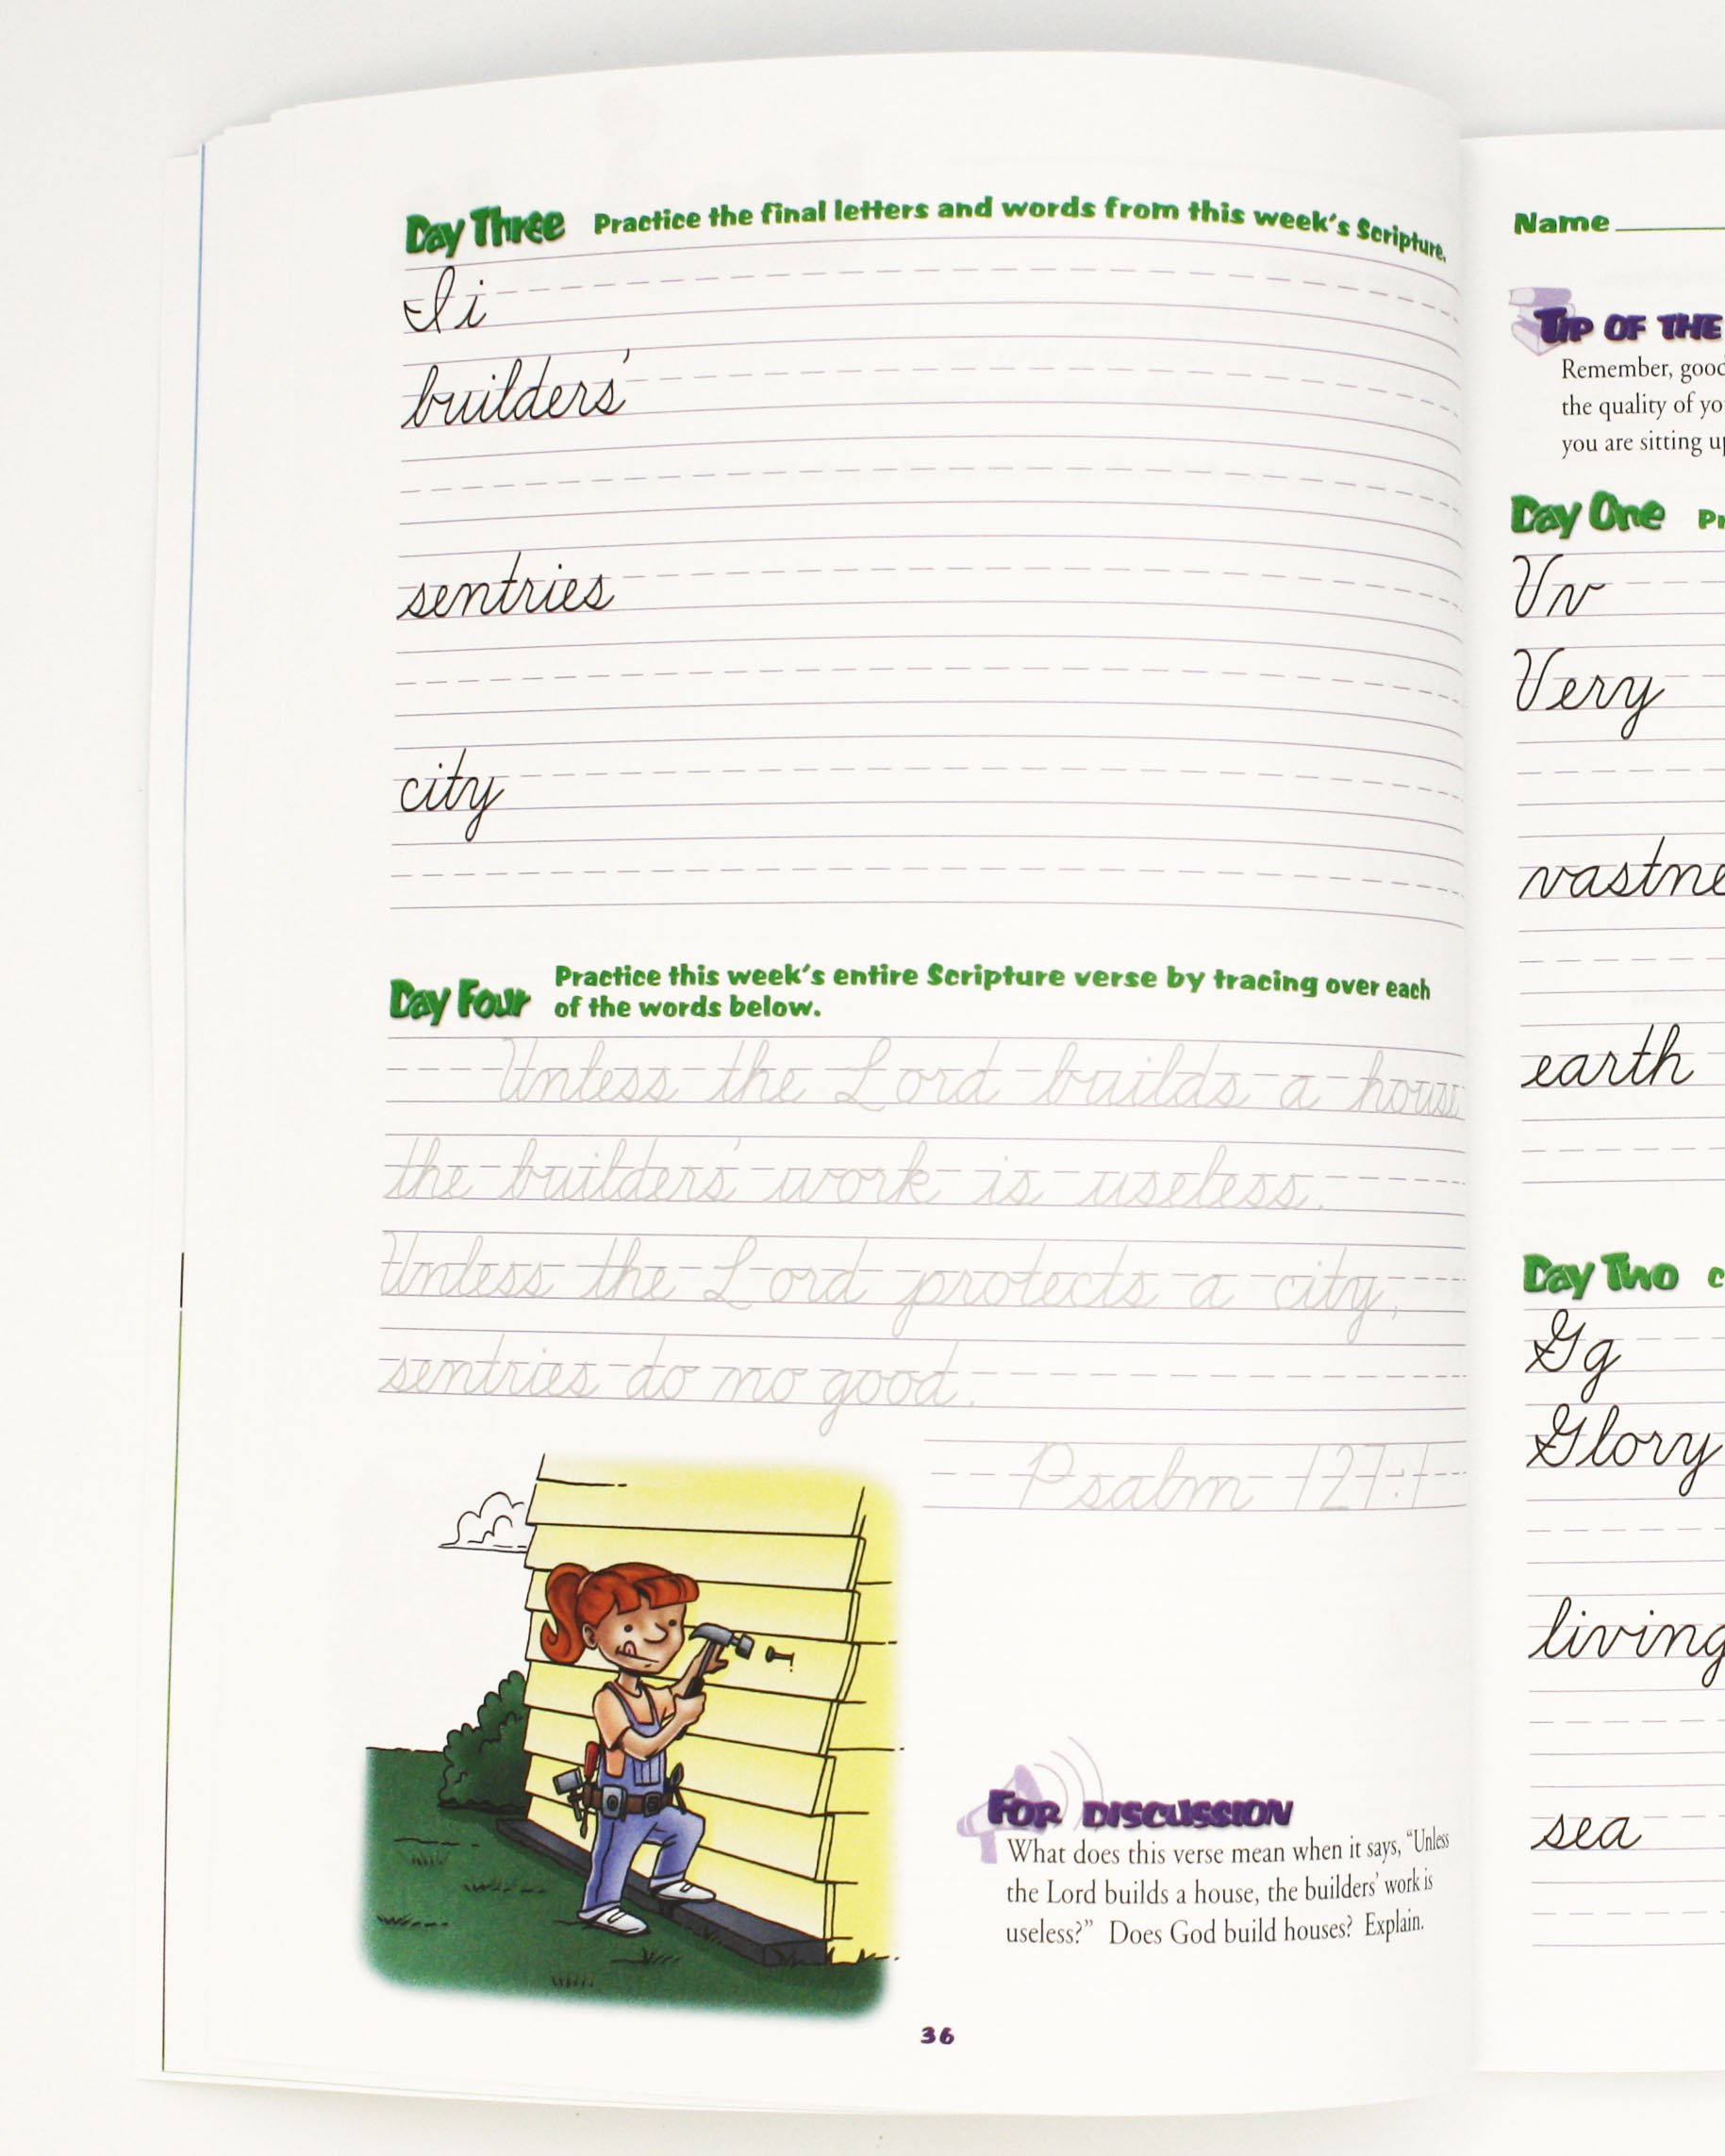 Day Three Practice the final letters and words from this week's Scripture.
Ii
builders'
sentries
city
Day Four Practice this week's entire Scripture verse by tracing over each
of the words below.
Unless the Lord builds a house,
the builders' work is useless.
Unless the Lord protects a city,
sentries do no good.
Psalm 127:1
FOR DISCUSSION
What does this verse mean when it says, “Unless
the Lord builds a house, the builders' work is
useless?” Does God build houses? Explain.
36
Name
TIP OF THE
Remember, good
the quality of
you are sitting
Day One
Vv
Very
earth
Day Two
Gg
Glory
living
sea